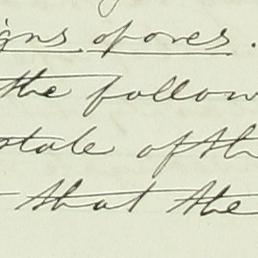 igns of ores.
the follow
state of th
that the